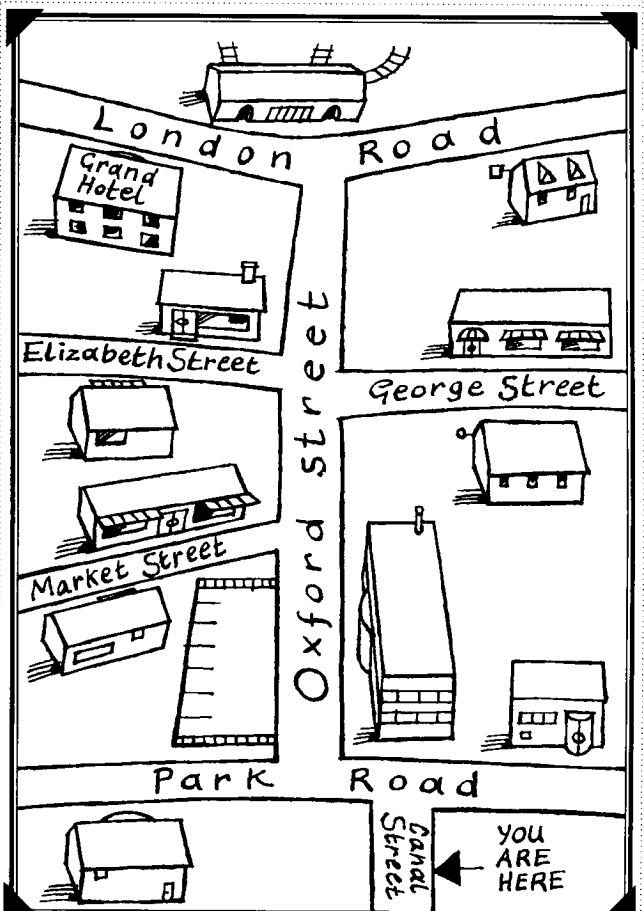 London Road
Grand
Hotel
Elizabeth Street
George Street
Oxford street
Market Street
Park Road
Canal
Street
YOU
ARE
HERE